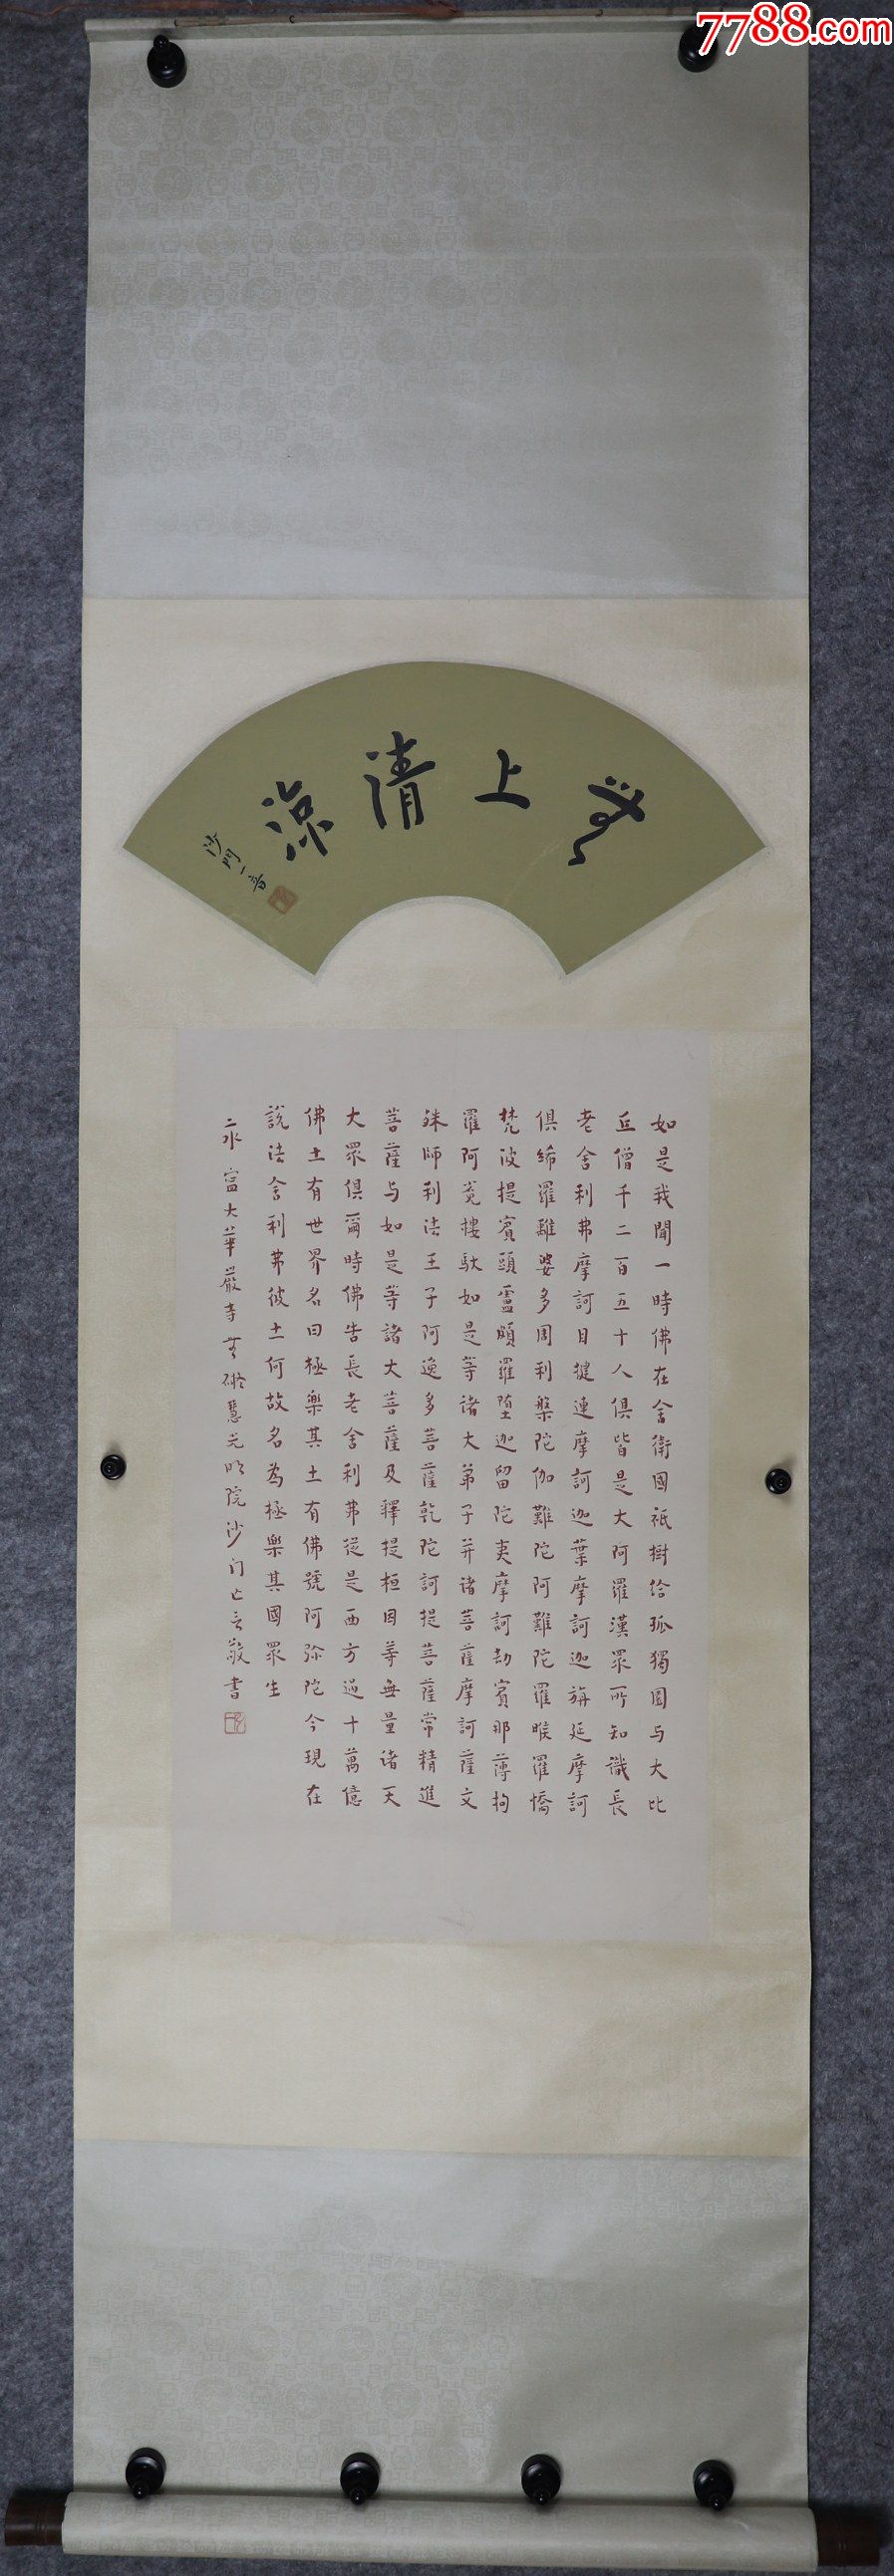 7788.com
無上清涼
沙門一音
如是我聞一時佛在舍衛國祇樹給孤獨園与大比
丘僧千二百五十人俱皆是大阿羅漢眾所知識長
老舍利弗摩訶目揵連摩訶迦葉摩訶迦旃延摩訶
俱絺羅離婆多周利槃陀伽難陀阿難陀羅睺羅憍
梵波提賓頭盧頗羅墮迦留陀夷摩訶劫賓那薄拘
羅阿㝹樓馱如是等諸大弟子并诸菩薩摩訶薩文
殊師利法王子阿逸多菩薩乾陀訶提菩薩常精進
菩薩与如是等諸大菩薩及釋提桓因等無量诸天
大眾俱爾時佛告長老舍利弗從是西方過十萬億
佛土有世界名曰極樂其土有佛號阿弥陀今現在
說法舍利弗彼土何故名為極樂其國眾生
永寧大華嚴寺無礙慧光明院沙门亡言敬書